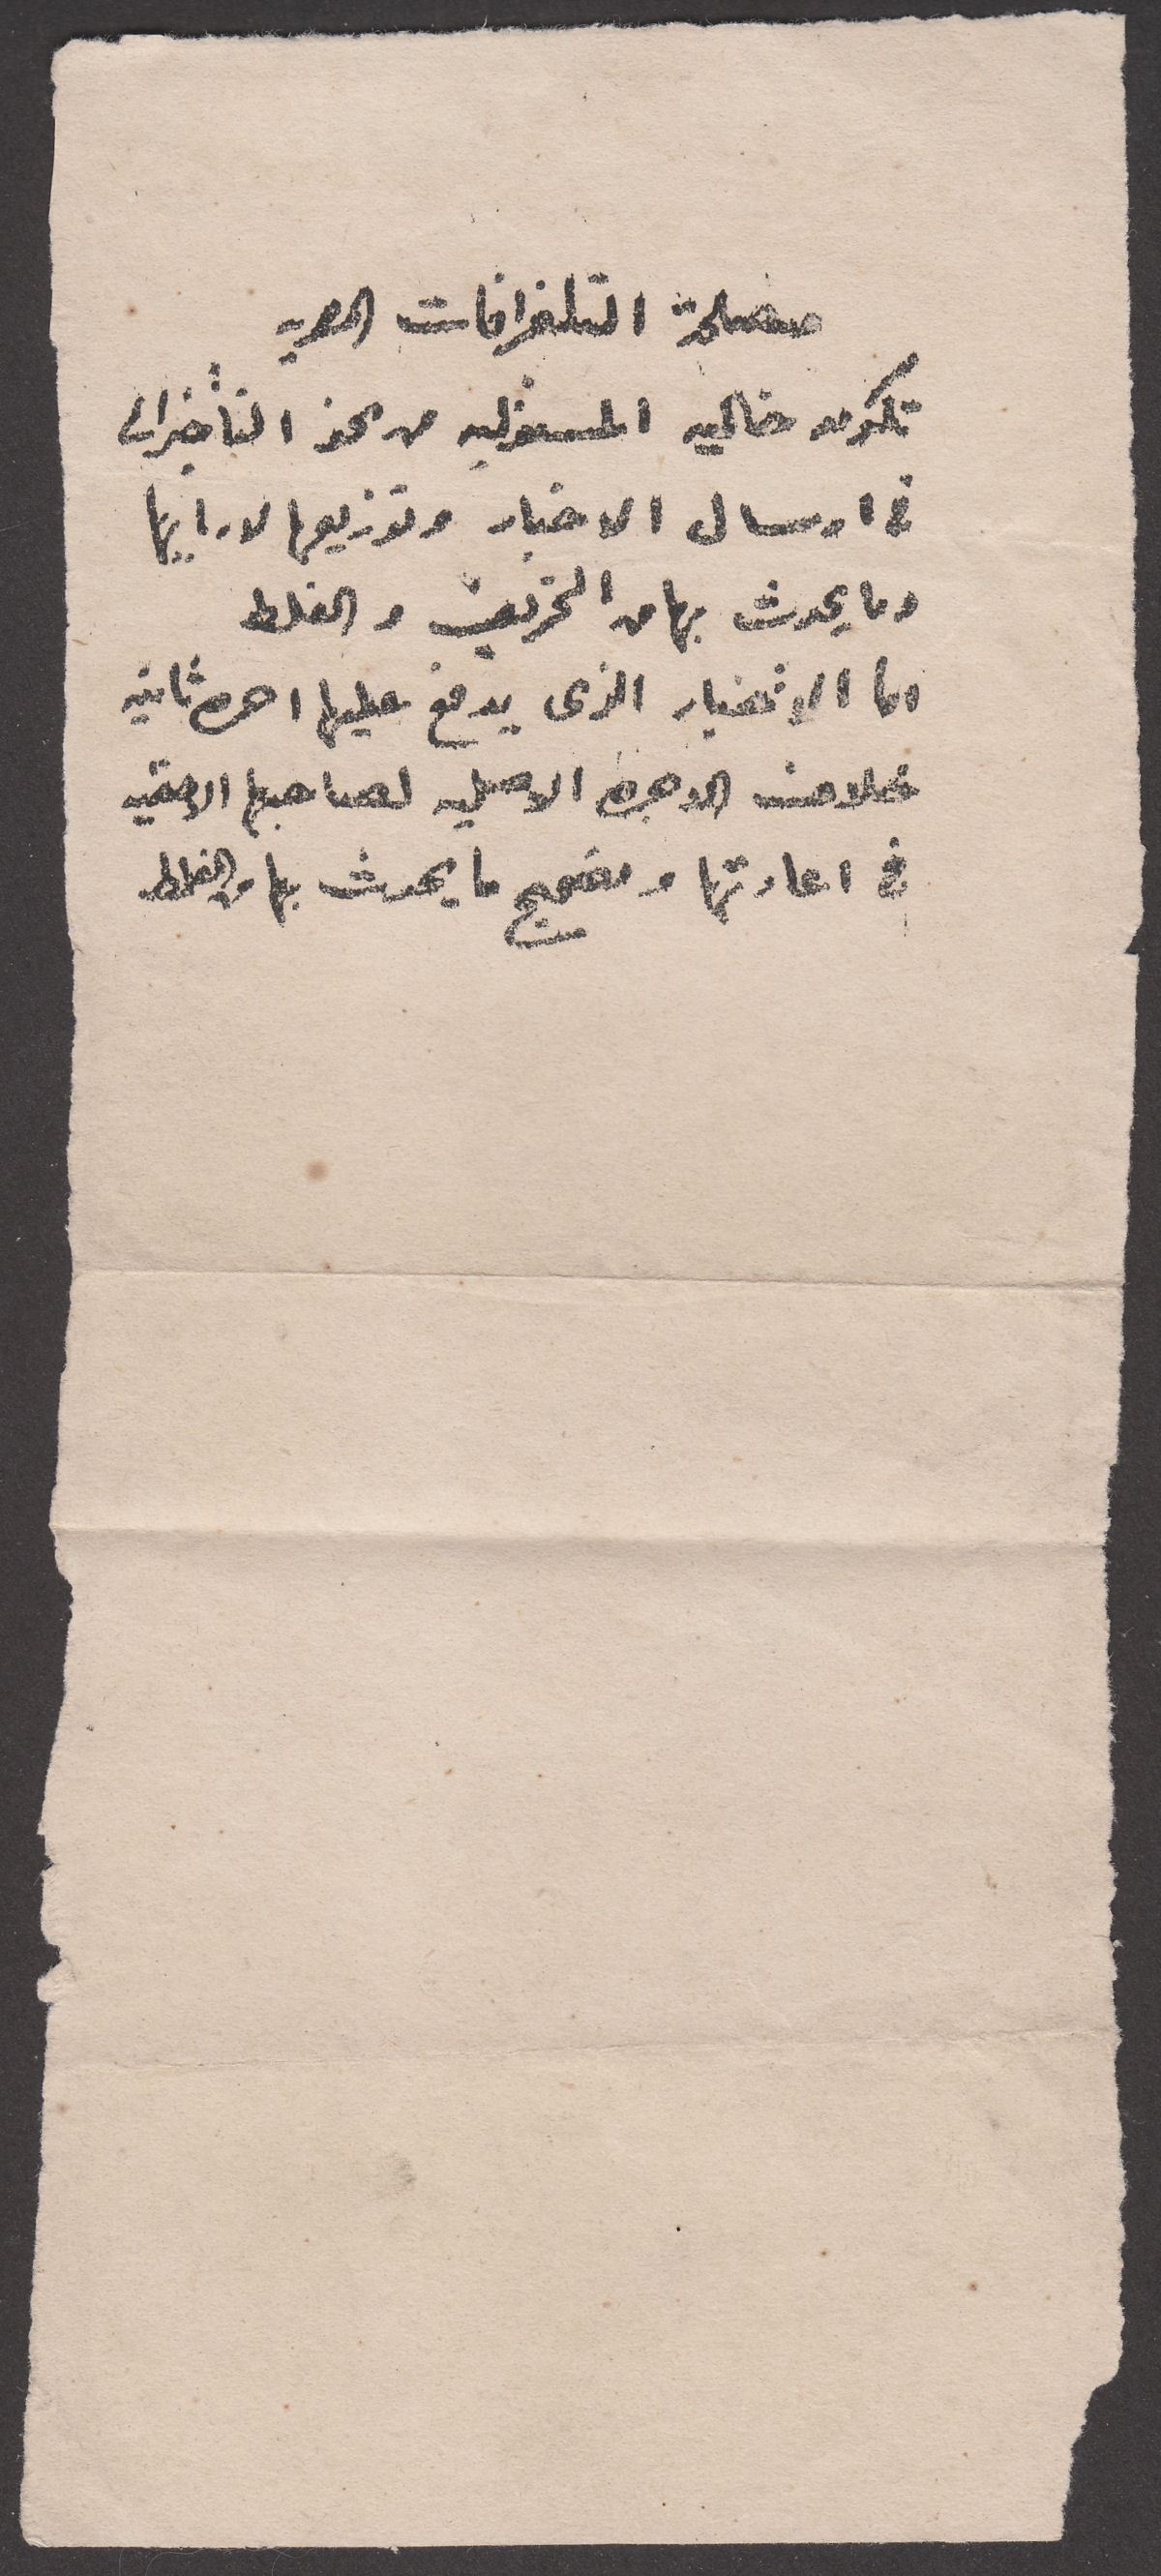 مصلحة التلغرافات المصريه
تكون خاليه المسئوليه من نحو التأخير
فى ارسال الاخبار وتوزيعها لاربابها
وما يحدث بها من التحريف والغلط
اما الاخبار الذى يدفع عليها اجره ثانيه
خلاف الاجره الاصليه لصاحبها الاحقيه
فى اعادتها وتصحيح ما يحدث بها من الغلط